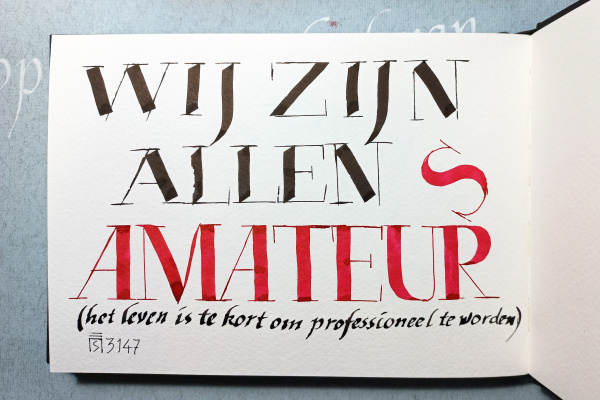 WIJ ZIJN
ALLEN
AMATEURS
(het leven is te kort om professioneel te worden)
3147